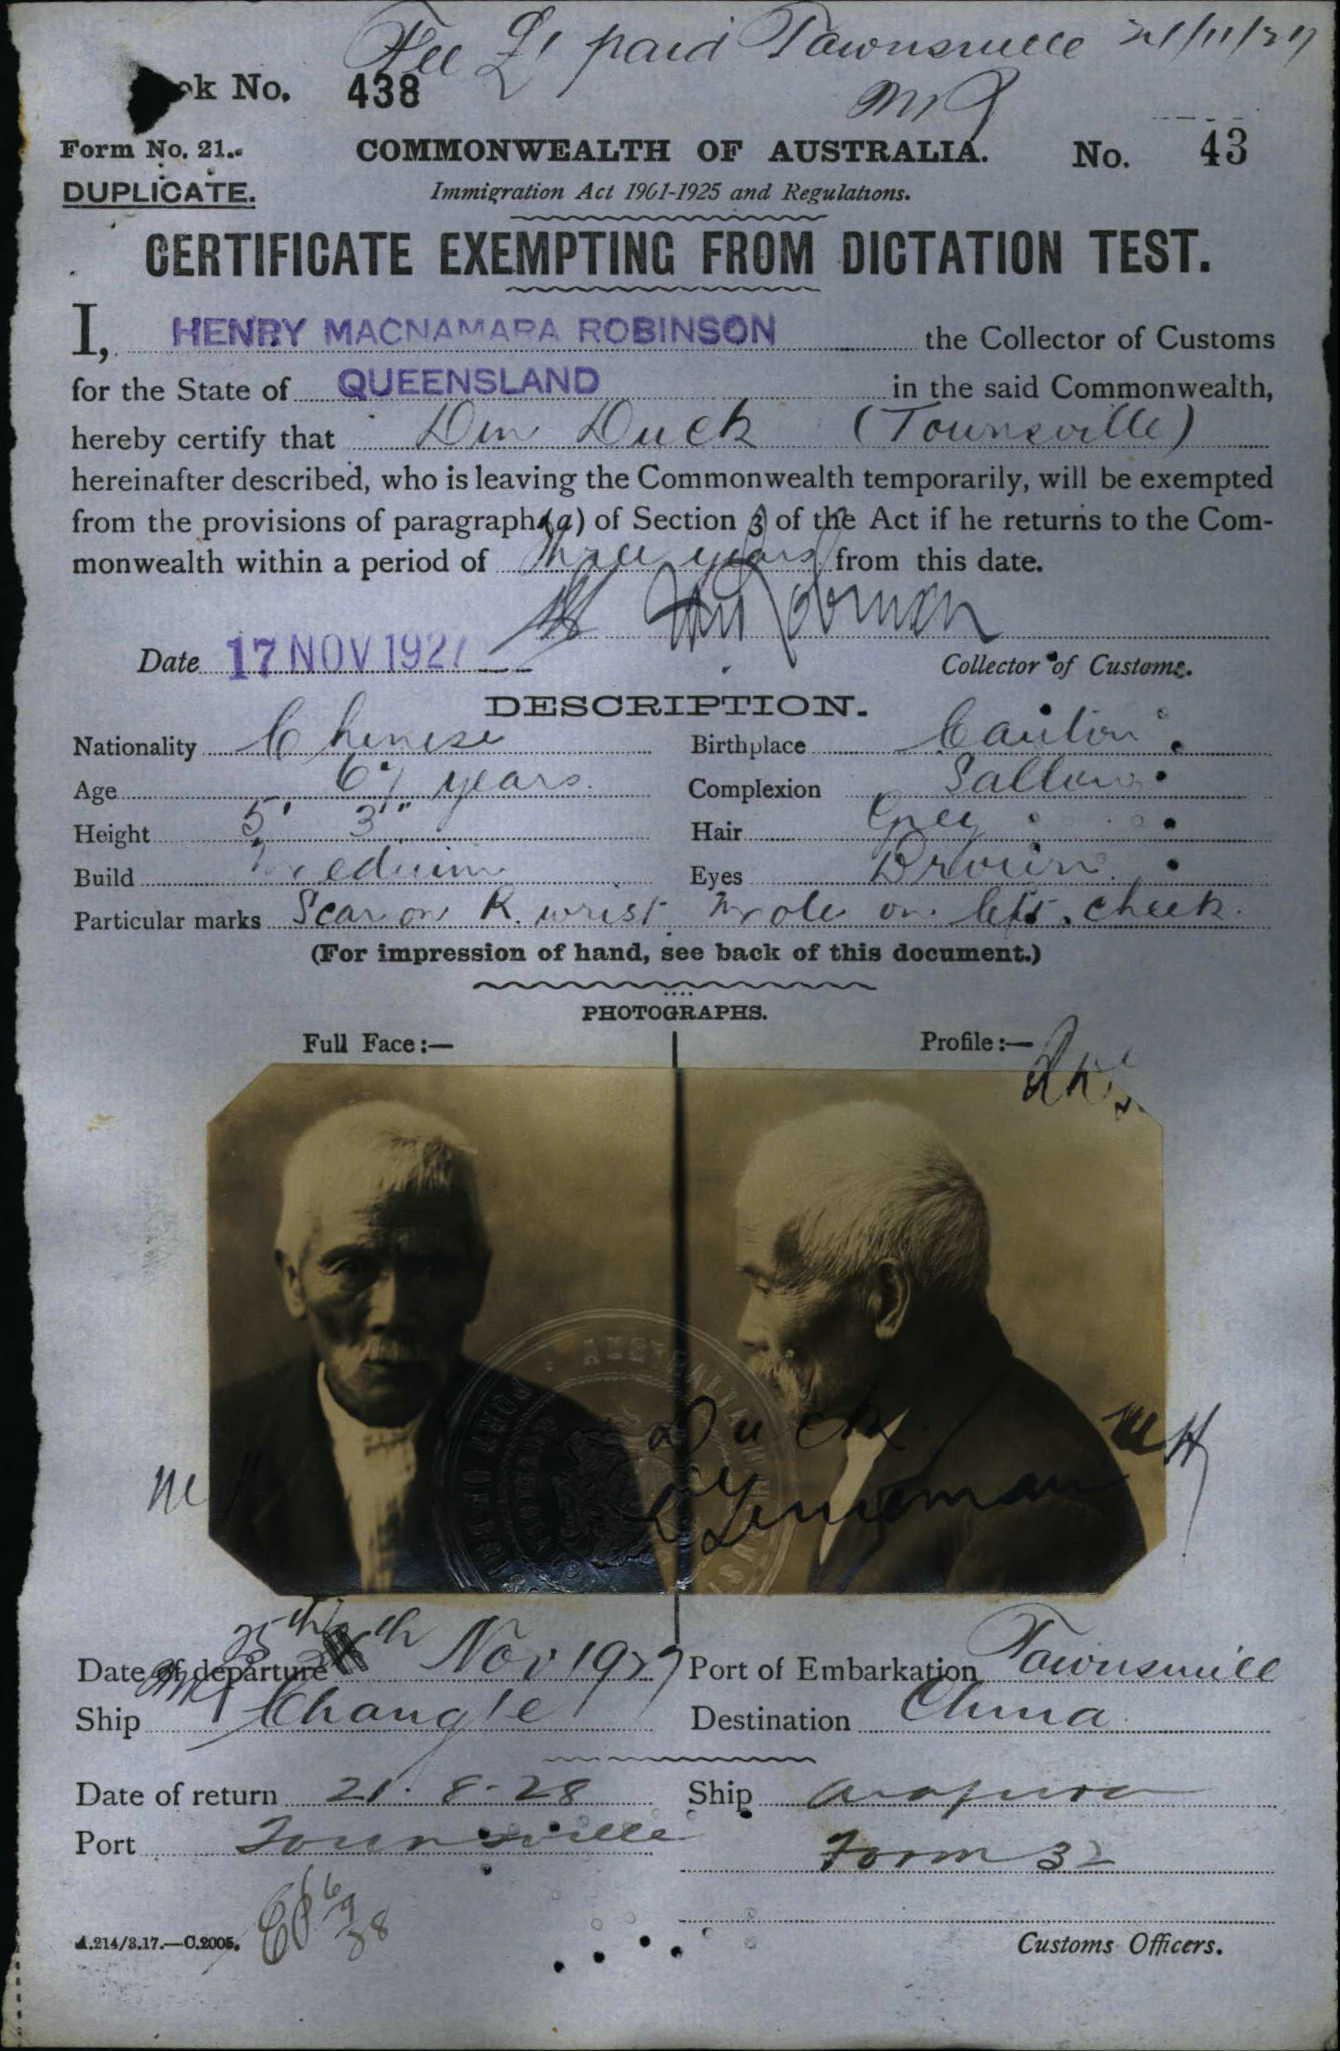 Fee £1 paid Townsville 21/11/27
ok No. 438
Form No. 21. COMMONWEALTH OF AUSTRALIA. No. 43
DUPLICATE. Immigration Act 1901-1925 and Regulations.
CERTIFICATE EXEMPTING FROM DICTATION TEST.
I, HENRY MACNAMARA ROBINSON the Collector of Customs
for the State of QUEENSLAND in the said Commonwealth,
hereby certify that Din Duck (Townsville)
hereinafter described, who is leaving the Commonwealth temporarily, will be exempted
from the provisions of paragraph (a) of Section 3 of the Act if he returns to the Com-
monwealth within a period of three years from this date.
Robinson
Date 17 NOV 1927 Collector of Customs.
DESCRIPTION.
Nationality Chinese Birthplace Canton
Age 67 years. Complexion Sallow
Height 5' 3" Hair Grey
Build Medium Eyes Brown
Particular marks Scar on R. wrist Mole on left cheek.
(For impression of hand, see back of this document.)
PHOTOGRAPHS.
Full Face:— Profile:—
Duck
MH
Date of departure 25th Nov 1927 Port of Embarkation Townsville
Ship Changte Destination China
Date of return 21.8.28 Ship Arafura
Port Townsville Form 32
A.214/3.17.—C.2005. Customs Officers.